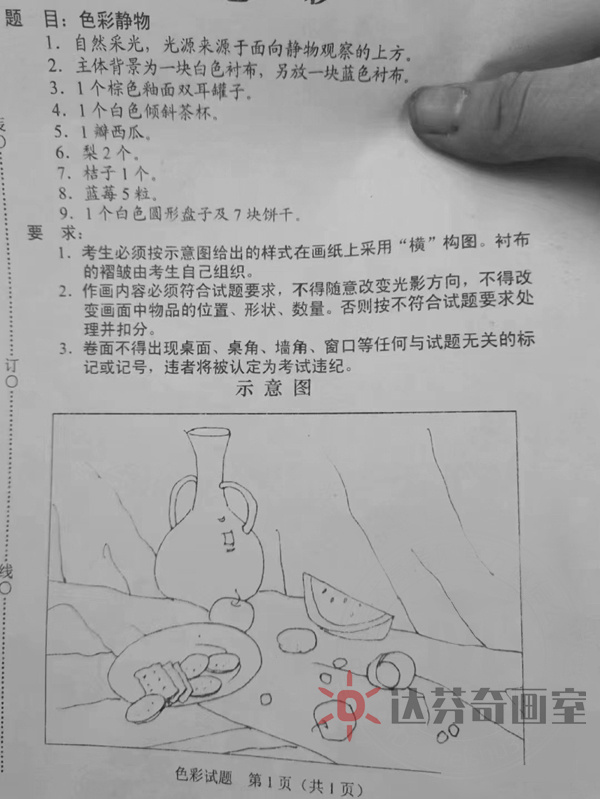 题 目：色彩静物
1．自然采光，光源来源于面向静物观察的上方。
2．主体背景为一块白色衬布，另放一块蓝色衬布。
3．1个棕色釉面双耳罐子。
4．1个白色倾斜茶杯。
5．1瓣西瓜。
6．梨2个。
7．桔子1个。
8．蓝莓5粒。
9．1个白色圆形盘子及7块饼干。
要 求：
1．考生必须按示意图给出的样式在画纸上采用“横”构图。衬布
的褶皱由考生自己组织。
2．作画内容必须符合试题要求，不得随意改变光影方向，不得改
变画面中物品的位置、形状、数量。否则按不符合试题要求处
理并扣分。
3．卷面不得出现桌面、桌角、墙角、窗口等任何与试题无关的标
记或记号，违者将被认定为考试违纪。
示 意 图
订
线
达芬奇画室
色彩试题 第1页（共1页）